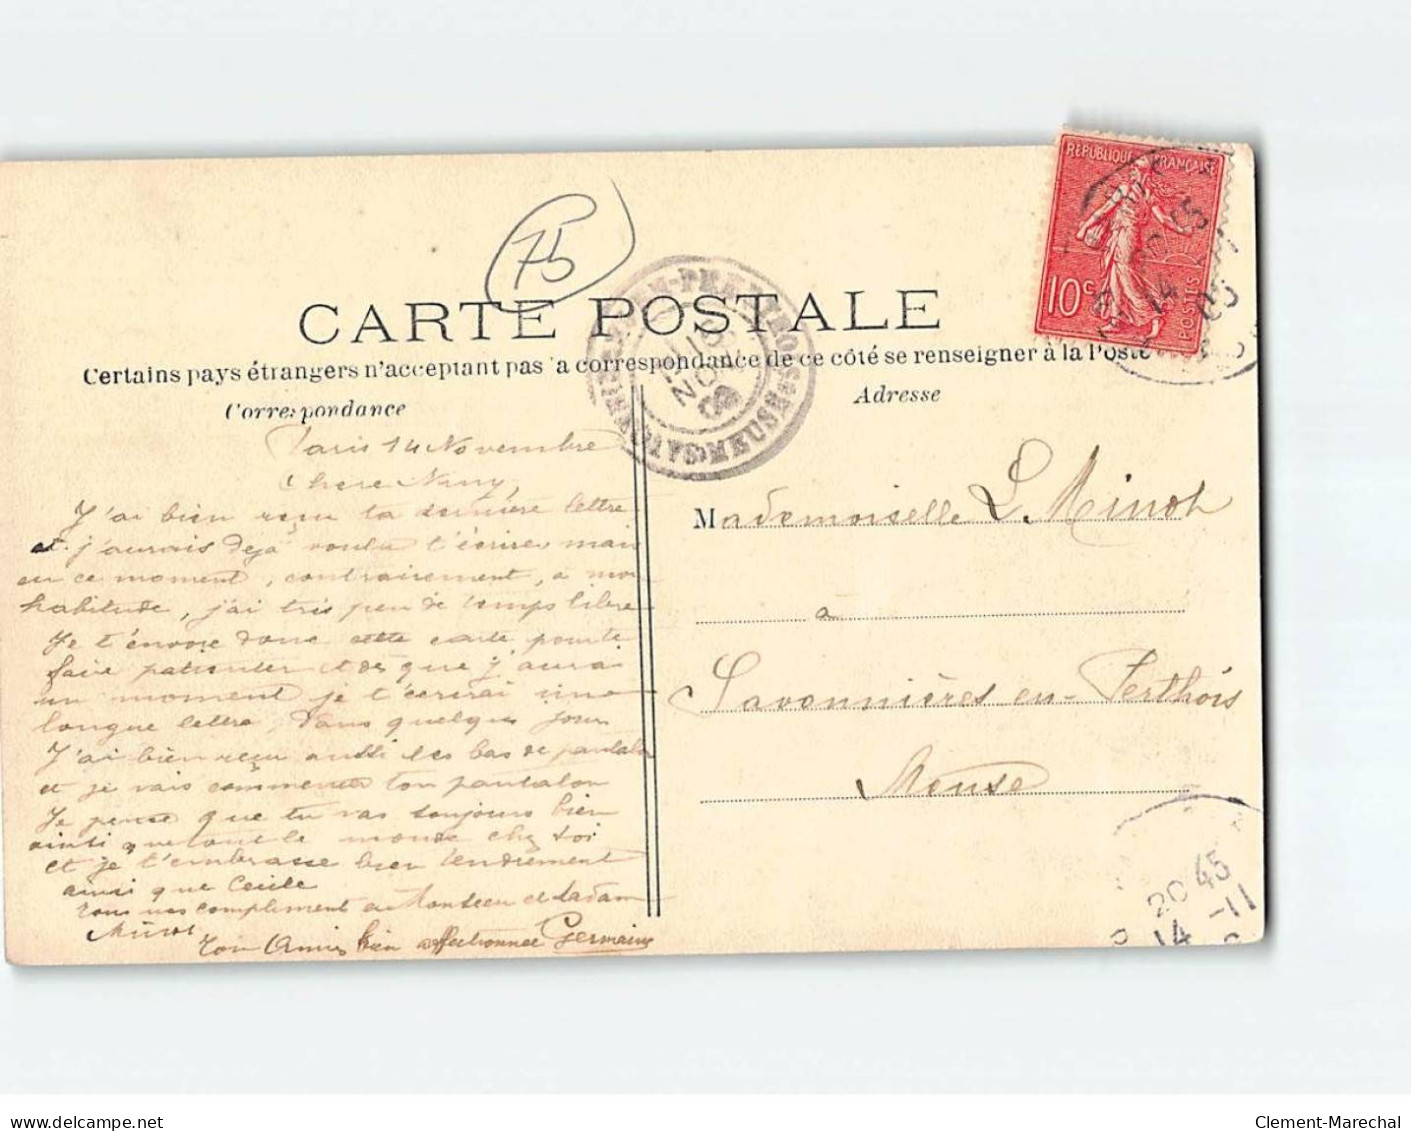 RÉPUBLIQUE FRANÇAISE
10c
POSTES
75
CARTE POSTALE
Certains pays étrangers n'acceptant pas la correspondance de ce côté se renseigner à la Poste
Correspondance
Adresse
MEUSE
Paris 14 Novembre
Chère Niny,
J'ai bien reçu ta dernière lettre
et j'aurais déjà voulu t'écrire mais
en ce moment, contrairement, à mon
habitude, j'ai très peu de temps libre
Je t'envoie donc cette carte pour te
faire patienter et dès que j'aurai
un moment je t'écrirai une
longue lettre, dans quelques jours
J'ai bien reçu aussi les bas de pantalon
et je vais commencer ton pantalon
Je pense que tu vas toujours bien
ainsi que tout le monde chez toi
et je t'embrasse bien tendrement
ainsi que Cécile
tous nos compliment à Monsieur et Madame
Minot
Ton Amie bien affectionnée Germaine
Mademoiselle L. Minot
à
Savonnières-en-Perthois
Meuse
20 45
14 -11
delcampe.net
Clement-Marechal